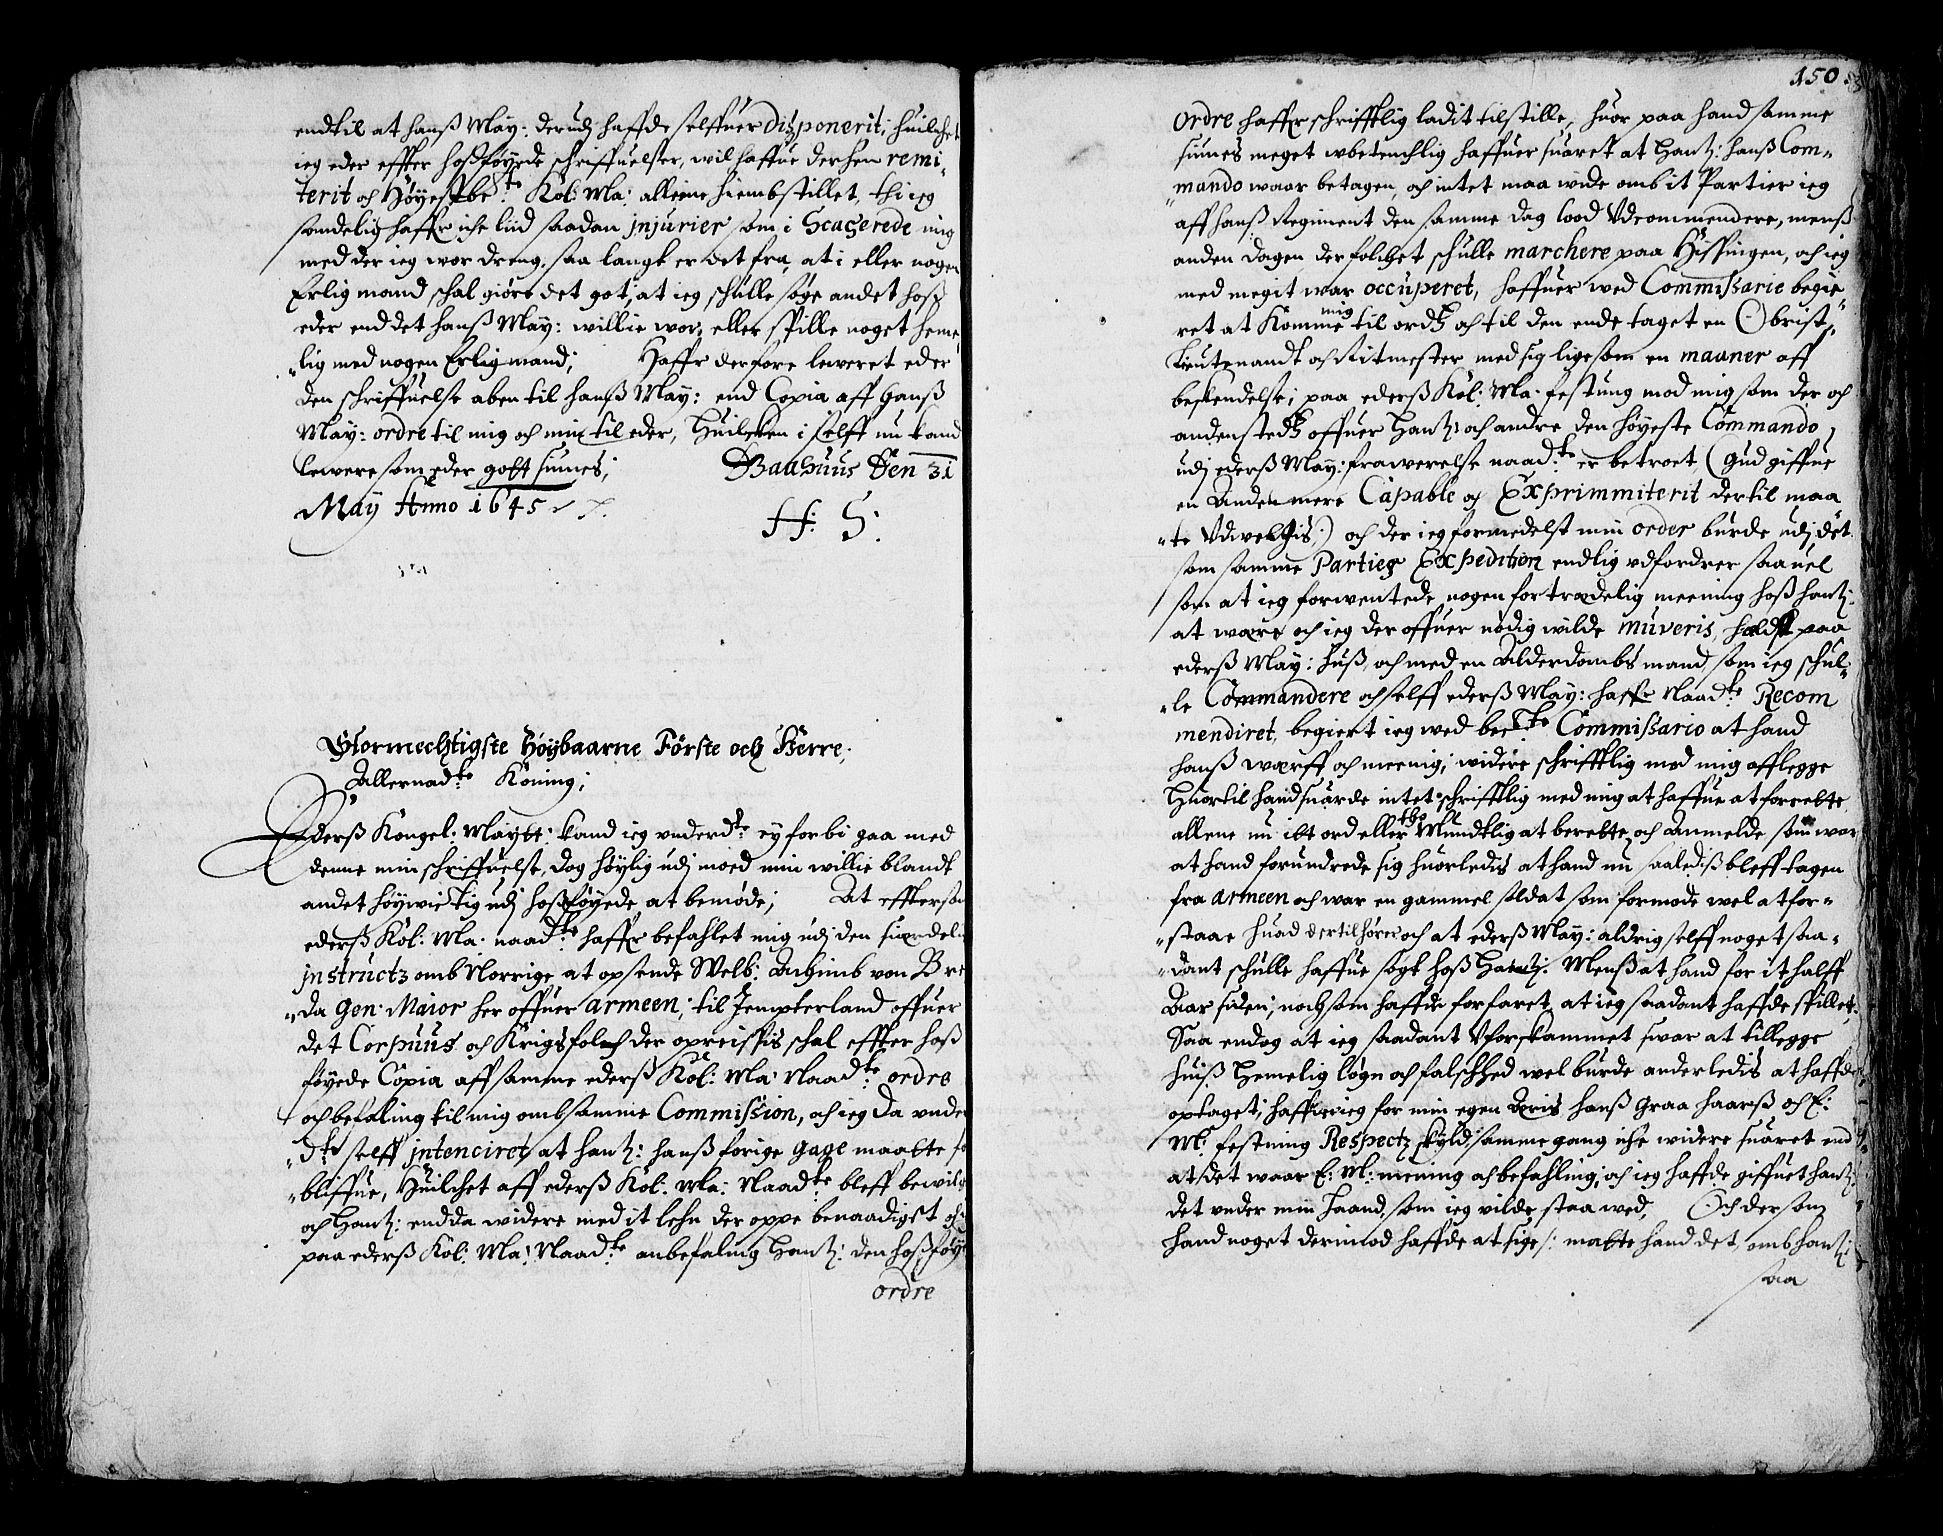 endtil at hanß May: derudj haffde selffuer disponerit; huilchet
ieg eder effter hoßföyede schriffuelser, wil haffue derhen remi,
terit och Höyestbe:te Kol: Ma: alleene hiembstillet, thi ieg
sandelig haffr iche liid saadan jnjurier som i Scagerede mig
med der ieg wor dreng, saa langt er det fra, at i eller nogen
Erlig mand schal giöre det got, at ieg schulle söge andet hoß
eder end det hanß May: willie wor, eller spille noget heme,
„lig med nogen Erlig mand; Haffr derfore leweret eder
den schriffuelse aben til hanß May: end Copia aff hanß
May: ordre til mig och min til eder, Huilchen i selff nu kand
lewere som eder gott siunes; Baahuus Den 31
May Anno 1645
H: S:
Stormechtigste Höybaarne Förste och Herre;
Allernad:te Köning;
Ederß Köngel: Maytt: kand ieg underd:t ey forbi gaa med
denne min schriffuelse, dog höylig udj moed min willie blandt
andet höywictig udj hoßföyede at bemöde; At effterson
ederß Kol: Ma. naad:te haffr befahlet mig udj den siærdel
jnstructz omb Norrige at opsende Welb: Achimb von Bre
„da Gen: Maior her offuer armeen, til Jempterland offuer
det Corpuus och Krigsfolch der opreispis schal effter hoß
föyede Copia aff samme ederß Kol: Ma: Naad:te ordre
och befaling til mig omb samme Commission, och ieg da unde
„d:te selff jntenciret at hantz: hanß forige gage maatte
„bliffue, Huilchet aff ederß Kol: Ma: Naad:te bleff bewil
och Hantz: endda widere med it lehn der oppe benaadigst och
paa ederß Kol: Ma: Naad:te anbefaling Hantz: den hoßföy
ordre
150
ordre haffr schrifftlig ladit tilstille, huor paa hand samme
siunes meget ubetenchlig haffuer suaret at hantz: hanß Com„
„mando waar betagen, och intet maa wide omb it Partier ieg
aff hanß Regiment den samme dag lood Udcommendere, menß
anden dagen der folchet schulle marchere paa Hissingen, och ieg
med megit war occuperet, haffuer wed Commissarie begie„
ret at Komme mig til ordz och til den ende taget en Obrist„
Lieutenandt och Ritmester med sig ligesom en maaner aff
beskendelse; paa ederß Kol: Ma. festung mod mig som der och
andenstedtz offuer Hantz: och andre den höyeste Commando
udj ederß May: frawerelse naad:te er betroet (Gud giffue
en Anden mere Capable och Exprimmiterit dertil maa
„te Udwelgis:) och der ieg formedelst min order burde udj det
som samme Parties Expedition endlig udfordrer saauel
som at ieg forwentede nogen fortrædelig meening hoß hantz:
at wære och ieg der offuer nödig wilde muveris, heldst paa
ederß May: huß, och med en Alderdombs mand, som ieg schul„
„le Commandere och selff ederß May: haffr Naad:te Recom
mendiret, begiert ieg wed be:te Commissario at hand
hanß warff och meenig; widere schrifftlig mod mig afflegge
Huortil hand suarde intet schrifftlig med mig at haffue at forrette
allene nu itt ord eller tho Mundtlig at berette och Anmelde som war
at hand forundrede sig huorledis at hand nu saaledis bleff tagen
fra armeen och war en gammel soldat som formode wel at for„
„staae huad dertil hörer och at ederß May: aldrig selff noget saa„
„dant schulle haffue sögt hoß Hantz: Menß at hand for it halff
Aar siden, nochsom haffde forfaret, at ieg saadant haffde spillet.
Saa endog at ieg saadant Uforskammet swar at tillegge
huiß hemelig lögn och falschhed wel burde anderledis at haffde
optaget; haffr ieg for min egen Æris hanß graa haarß och E:
M: festning Respectz skyld, samme gang iche widere suaret end
at det waar E: M: mening och befahling, och ieg haffde giffuet hantz
det under min haand, som ieg vilde staa wed, Och der som
hand noget dermod haffde at sige /: matte hand det, omb hantz:
saa